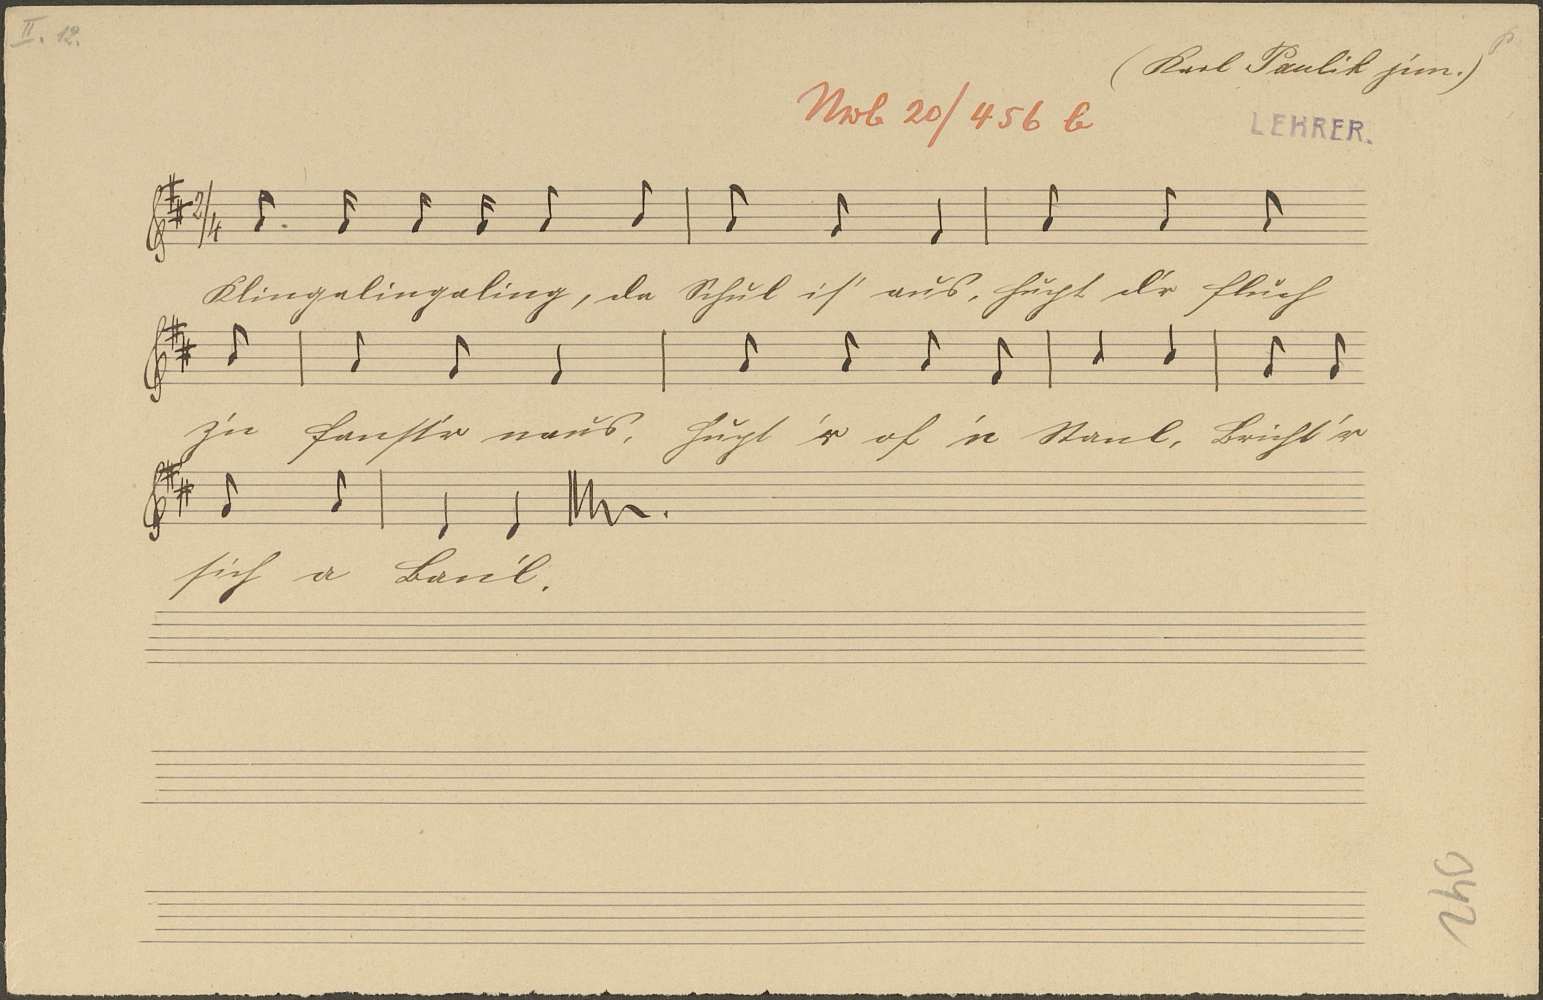 II. 12.
(Karl Paulik jun.)
Nrb 20/456 b
LEHRER.
2/4
Klingalingaling, da Schul is' aus, hupt d'r fluch
z'n fanst'r naus, hupt 'r of 'n Stanl, bricht 'r
sich a Ban'l.
240